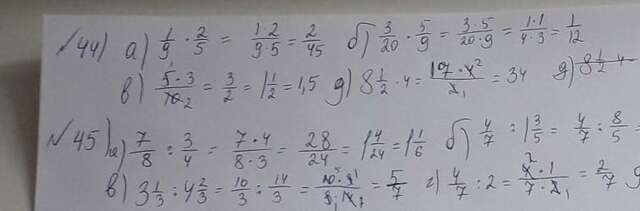 №44) а) 1/9 · 2/5 = (1·2)/(9·5) = 2/45 б) 3/20 · 5/9 = (3·5)/(20·9) = (1·1)/(4·3) = 1/12
в) (5·3)/10 2 = 3/2 = 1 1/2 = 1,5 д) 8 1/2 · 4 = (17·4 2)/2 1 = 34
№45) а) 7/8 : 3/4 = (7·4)/(8·3) = 28/24 = 1 4/24 = 1 1/6 б) 4/7 : 1 3/5 = 4/7 : 8/5 =
в) 3 1/3 : 4 2/3 = 10/3 : 14/3 = = 5/7 г) 4/7 : 2 = (4 2 · 1)/(7·2 1) = 2/7